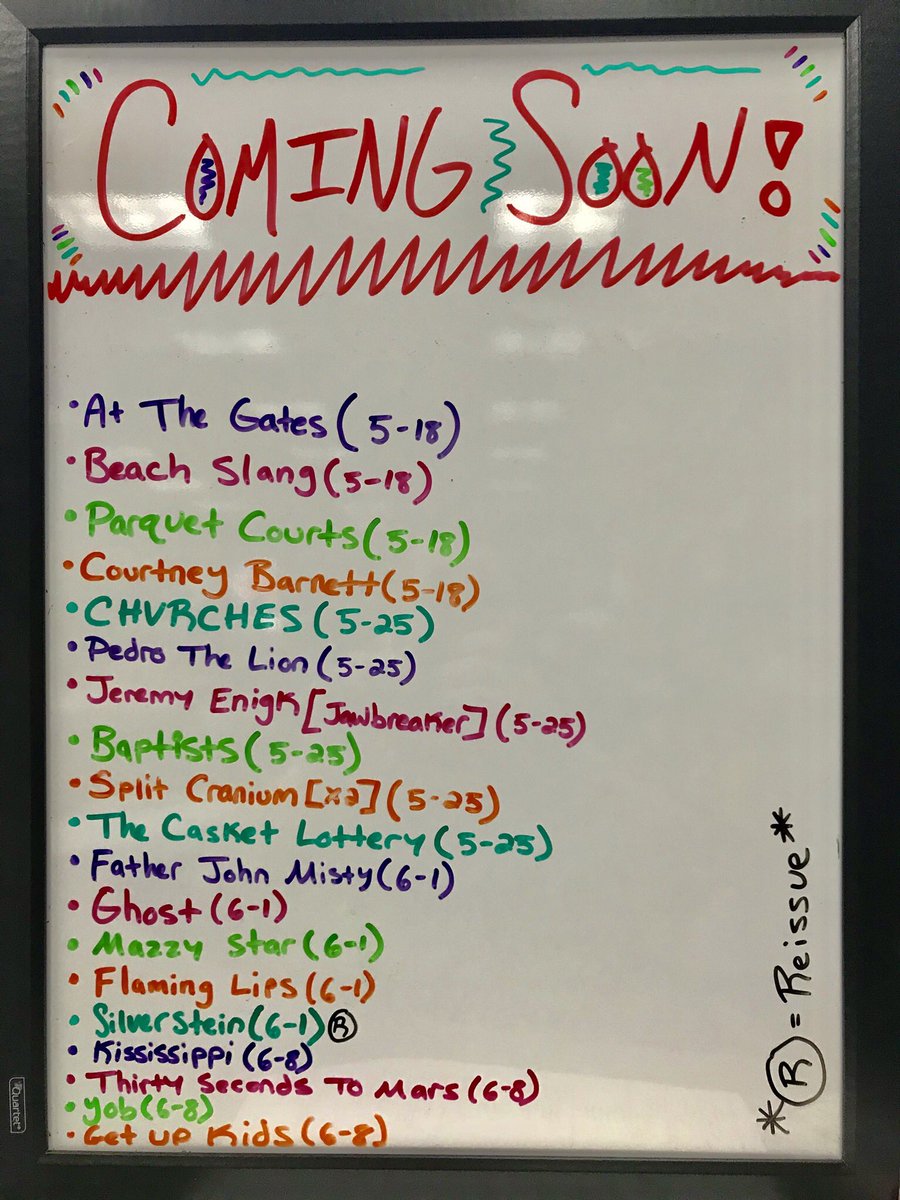 COMING SOON!
• At The Gates (5-18)
• Beach Slang (5-18)
• Parquet Courts (5-18)
• Courtney Barnett (5-18)
• CHVRCHES (5-25)
• Pedro The Lion (5-25)
• Jeremy Enigk [Jawbreaker] (5-25)
• Baptists (5-25)
• Split Cranium [x2] (5-25)
• The Casket Lottery (5-25)
• Father John Misty (6-1)
• Ghost (6-1)
• Mazzy Star (6-1)
• Flaming Lips (6-1)
• Silverstein (6-1) Ⓡ
• Kississippi (6-8)
• Thirty Seconds To Mars (6-8)
• Yob (6-8)
• Get Up Kids (6-8)
*Ⓡ = Reissue*
Quartet